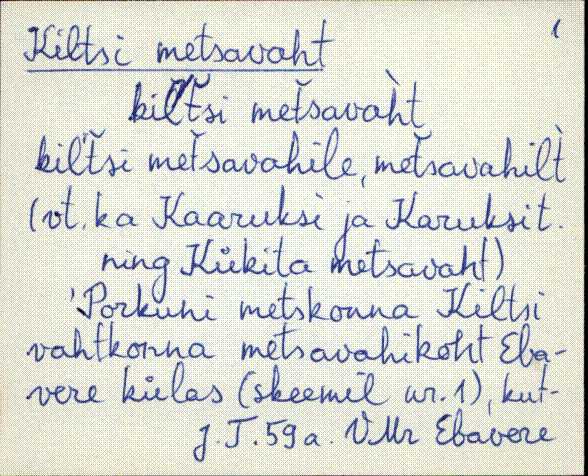 1
Kiltsi metsavaht
kiľťsi meťsavah̀t
kiľťsi meťsavahile, meťsavahilt̀
(vt. ka Kaaruksi ja Karuksit.
ning Kükita metsavaht)
'Porkuni metskonna Kiltsi
vahtkonna metsavahikoht Eba-
vere külas (skeemil nr. 1), kut-
J. T. 59 a. VMr Ebavere